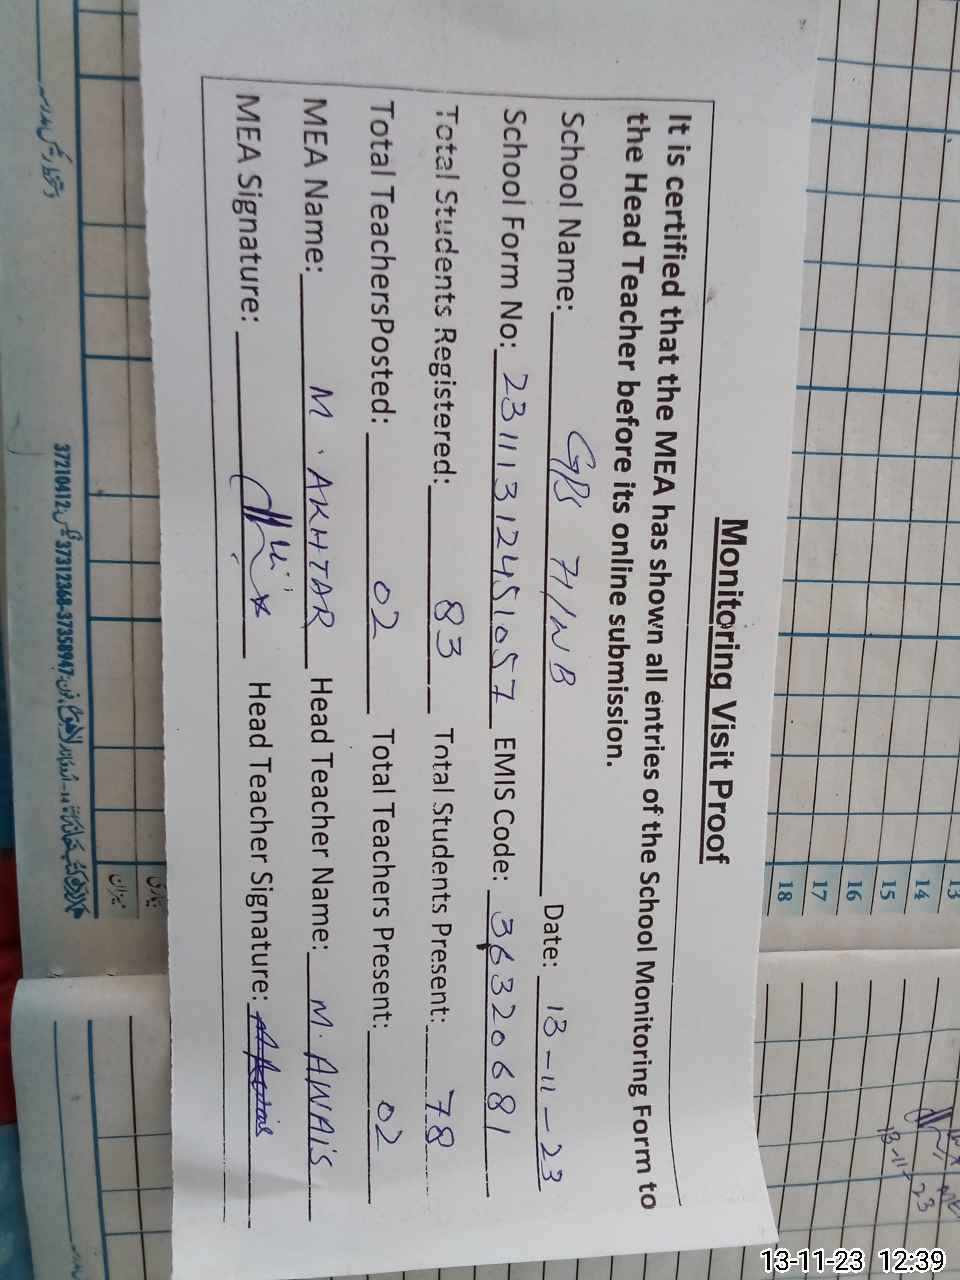 Monitoring Visit Proof
It is certified that the MEA has shown all entries of the School Monitoring Form to
the Head Teacher before its online submission.
School Name: GPS 71/WB Date: 13-11-23
School Form No: 2311131245 1057 EMIS Code: 36320681
Total Students Registered: 83 Total Students Present: 78
Total TeachersPosted: 02 Total Teachers Present: 02
MEA Name: M. AKHTAR Head Teacher Name: M. AWAIS
MEA Signature: Head Teacher Signature:
13
14
15
16
17
18
13-11-23
37210412 37312368-37358947
13-11-23 12:39